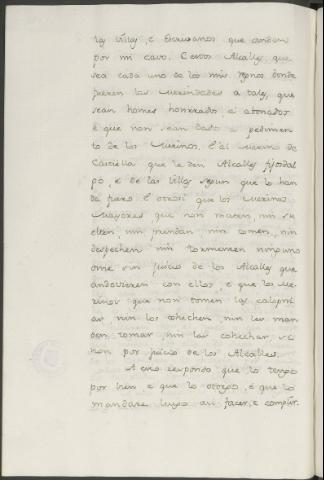 las Villas e Escrivanos que anden
por mi cavo. E otros Alcalles, que
sea cada uno de los mis regnos donde
fueren las merindades a tales, que
sean homes honrrados e abonados
e que non sean dados a pedimien
to de los Merinos, e al merino de
Castiella que le den Alcalles fijosdal
go, e de las Villas segun que lo han
de fuero. E otrosi que los Merinos
mayores que non maten, nin su
elten, nin prendan nin tomen, nin
despechen nin tormenten ninguno
ome sin juicio de los Alcalles que
andovieren con ellos, e que los Me-
rinos que non tomen las calopni
as, nin los cohechen, nin las man
den tomar, nin las cohechar, si
non por juicio de los Alcalles.
A esto respondo que lo tengo
por bien, e que lo otorgo, e que lo
mandare luego asi facer, e complir.